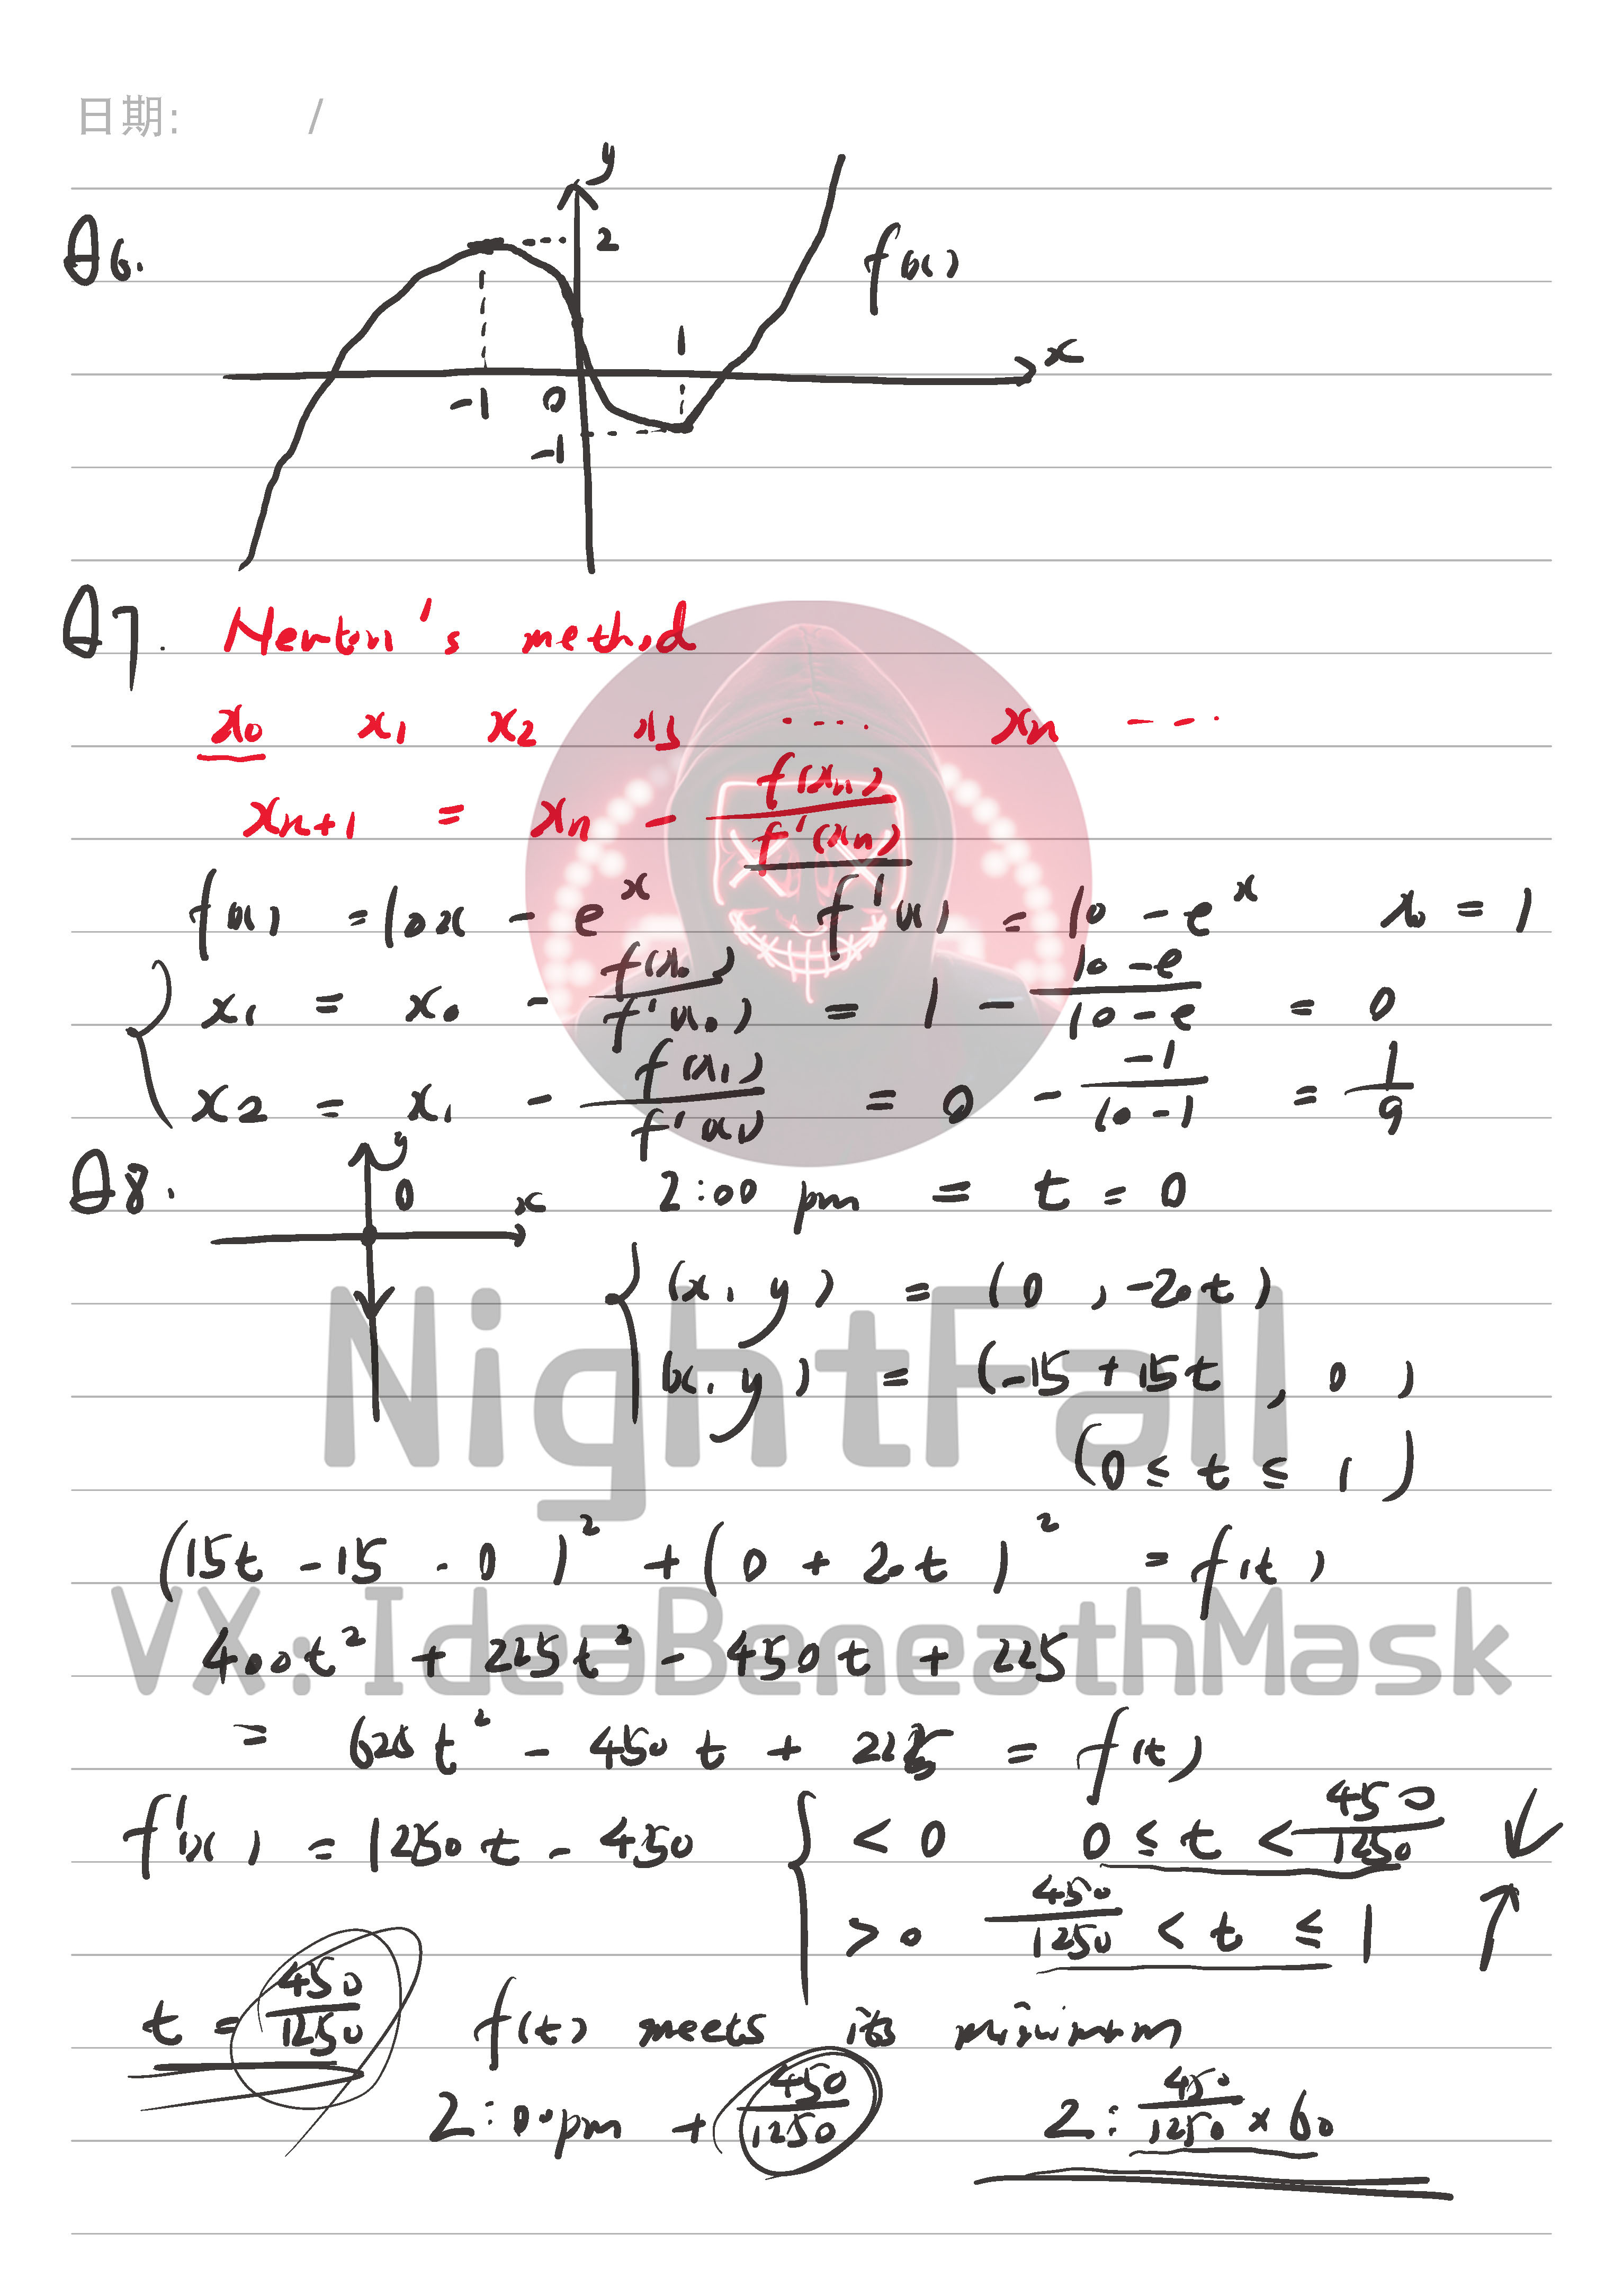 日期: /
y
Q6.
2
f(x)
1
x
-1 0
-1
Q7. Newton's method
x₀ x₁ x₂ x₃ .... xₙ ---
xₙ₊₁ = xₙ - f(xₙ)/f'(xₙ)
f(x) = 10x - eˣ f'(x) = 10 - eˣ x₀ = 1
x₁ = x₀ - f(x₀)/f'(x₀) = 1 - (10-e)/(10-e) = 0
x₂ = x₁ - f(x₁)/f'(x₁) = 0 - (-1)/(10-1) = 1/9
Q8. y 0 x 2:00 pm = t = 0
(x, y) = (0, -20t)
NightFall
(x, y) = (-15+15t, 0)
(0 ≤ t ≤ 1)
(15t - 15 - 0)² + (0 + 20t)² = f(t)
VX: IdeaBeneathMask
400t² + 225t² - 450t + 225
= 625t² - 450t + 225 = f(t)
f'(x) = 1250t - 450 { < 0 0 ≤ t < 450/1250 ↓
> 0 450/1250 < t ≤ 1 ↑
t = 450/1250 f(t) meets its minimum
2:00pm + 450/1250 2: 450/1250 × 60